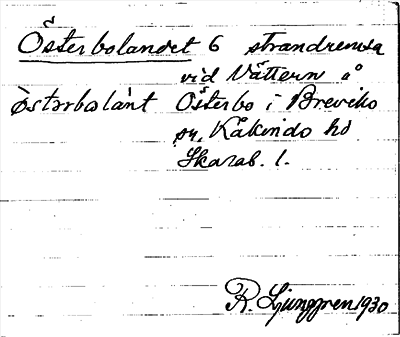 Österbolandet 6 strandremsa
vid Vättern å
östərbolànt Österbo i Breviks
sn, Kåkinds hd
Skarab. l.
R. Ljunggren 1930